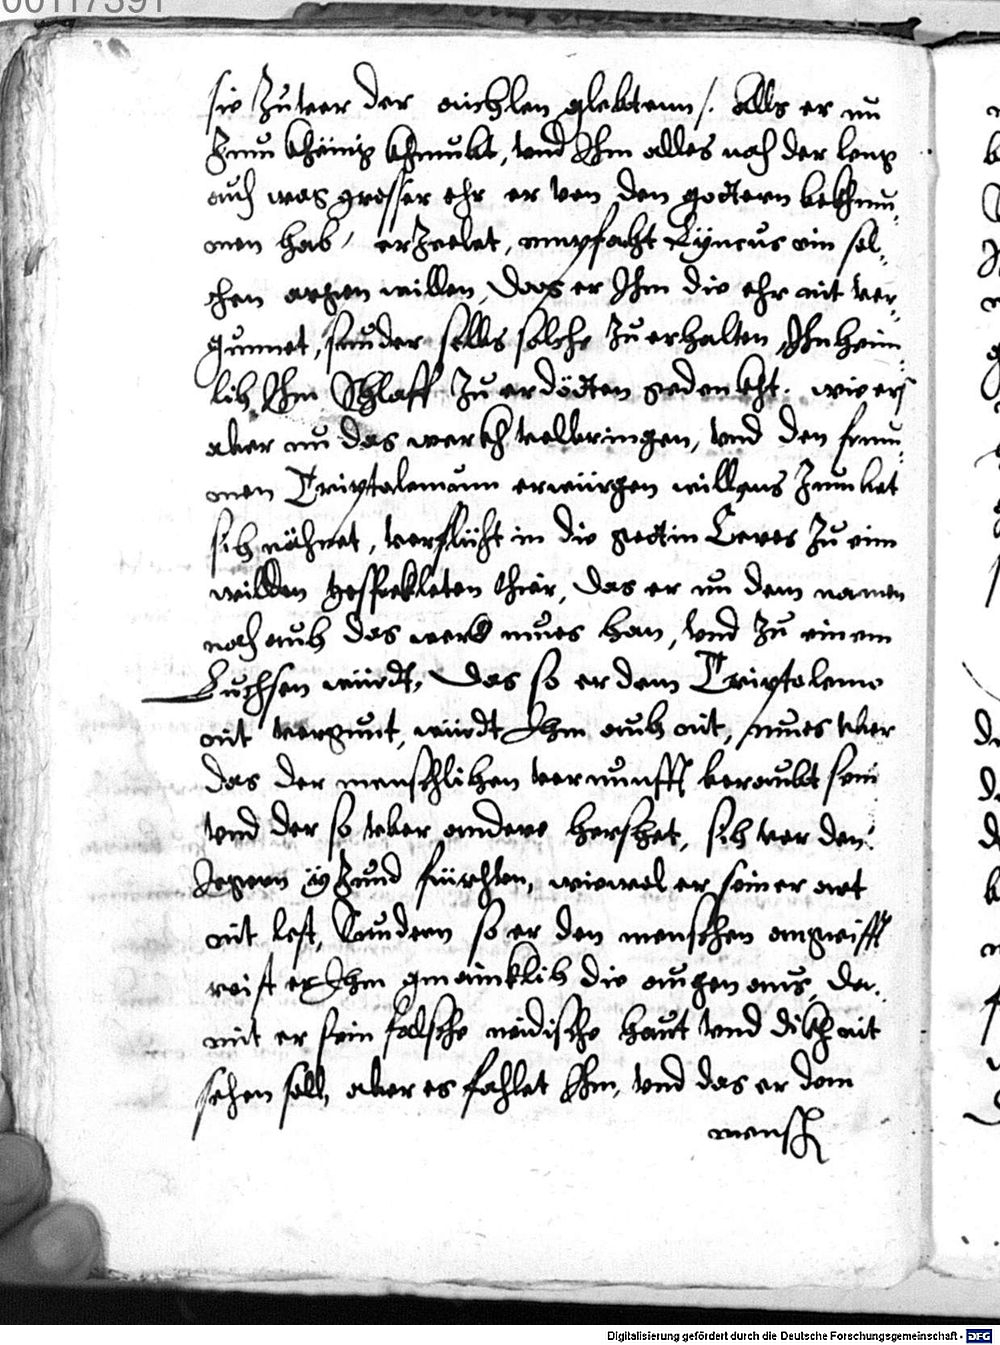 00117391
sie Zuuor der aichlen glebtenn /. Alls er nu
Zum khönig khumbt, vnd Ihm alles nach der leng
auch was grosser ehr er von den göttern bekhum¬
men hab, erzeelet, empfacht Lyncus ein sol¬
chen argen willen, das er Ihm die ehr nit ver¬
gunnet, sunder selbs solche zu erhalten, Ihn heim¬
lich Ihm Schlaff Zu erdödten gedenckht. wie ers
aber nu das werkh volbringen, vnd den frum¬
men Triptolemum erwürgen willens Zum bet
sich nähnet, verflücht in die gottin Ceres Zu eim
willden gesprekleten thier, das er nu dem namen
nach auch das werk mues han, vnd Zu einem
Luchsen würdt. Das so er dem Triptolemo
nit vergunt, würdt Ihm auch nit, mues vber
das der menschlichen vernunfft beraubt sein
vnd der so vber andere herschet, sich vor den
Jegern yzund fürchten, wiewol er seiner art
nit lest, Sundern so er den menschen angreifft
reist er Ihm gmainklich die augen aus, da¬
mit er sein falsche neidische haut vnd dickh nit
sehen soll, aber es fahlet Ihm, vnd das er dem
mensch
Digitalisierung gefördert durch die Deutsche Forschungsgemeinschaft - DFG